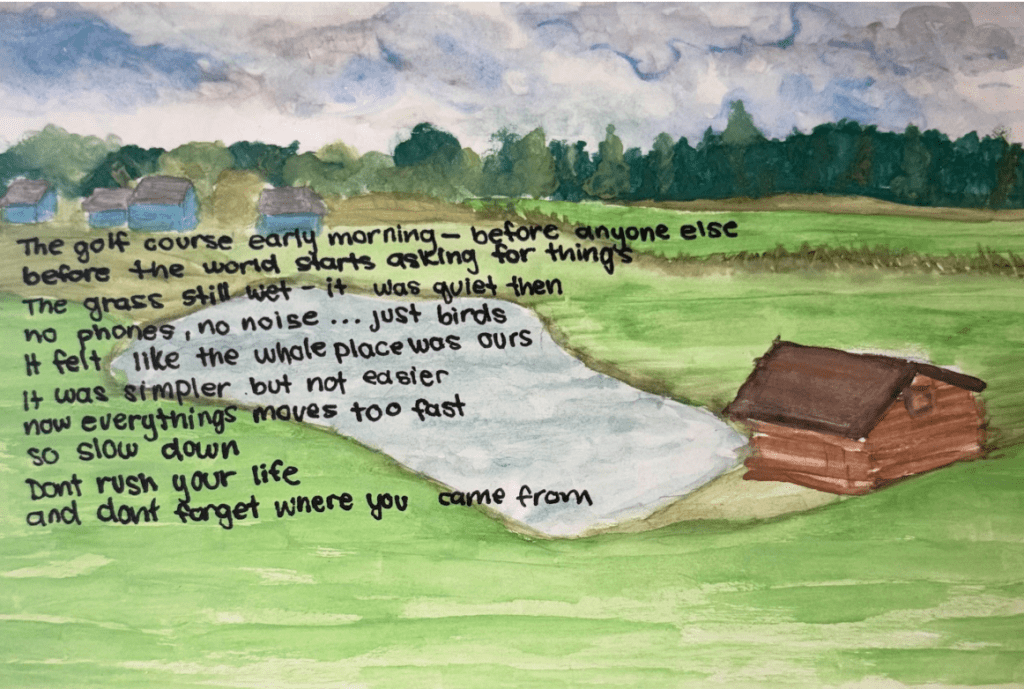 The golf course early morning – before anyone else
before the world starts asking for things
The grass still wet – it was quiet then
no phones, no noise ... just birds
It felt like the whole place was ours
It was simpler but not easier
now everythings moves too fast
so slow down
Dont rush your life
and dont forget where you came from